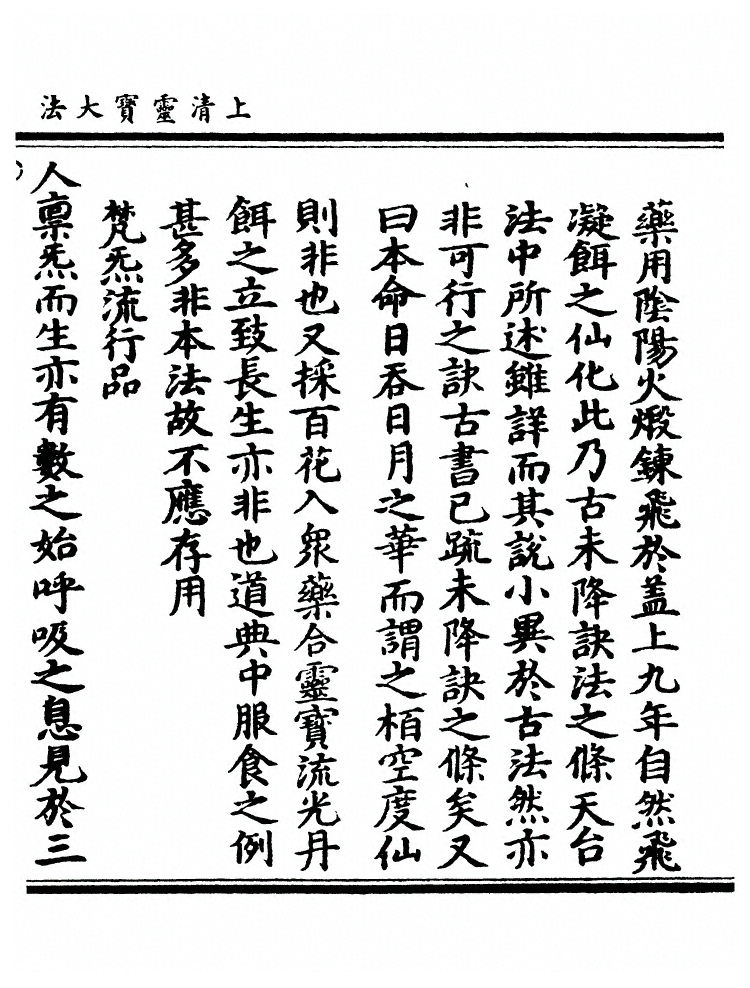 上清靈寶大法
藥用陰陽火煅鍊飛於蓋上九年自然飛
凝餌之仙化此乃古未降訣法之條天台
法中所述雖詳而其說小異於古法然亦
非可行之訣古書已䟽未降訣之條矣又
曰本命日吞日月之華而謂之栢空度仙
則非也又採百花入衆藥合靈寶流光丹
餌之立致長生亦非也道典中服食之例
甚多非本法故不應存用
梵炁流行品
人禀炁而生亦有數之始呼吸之息見於三